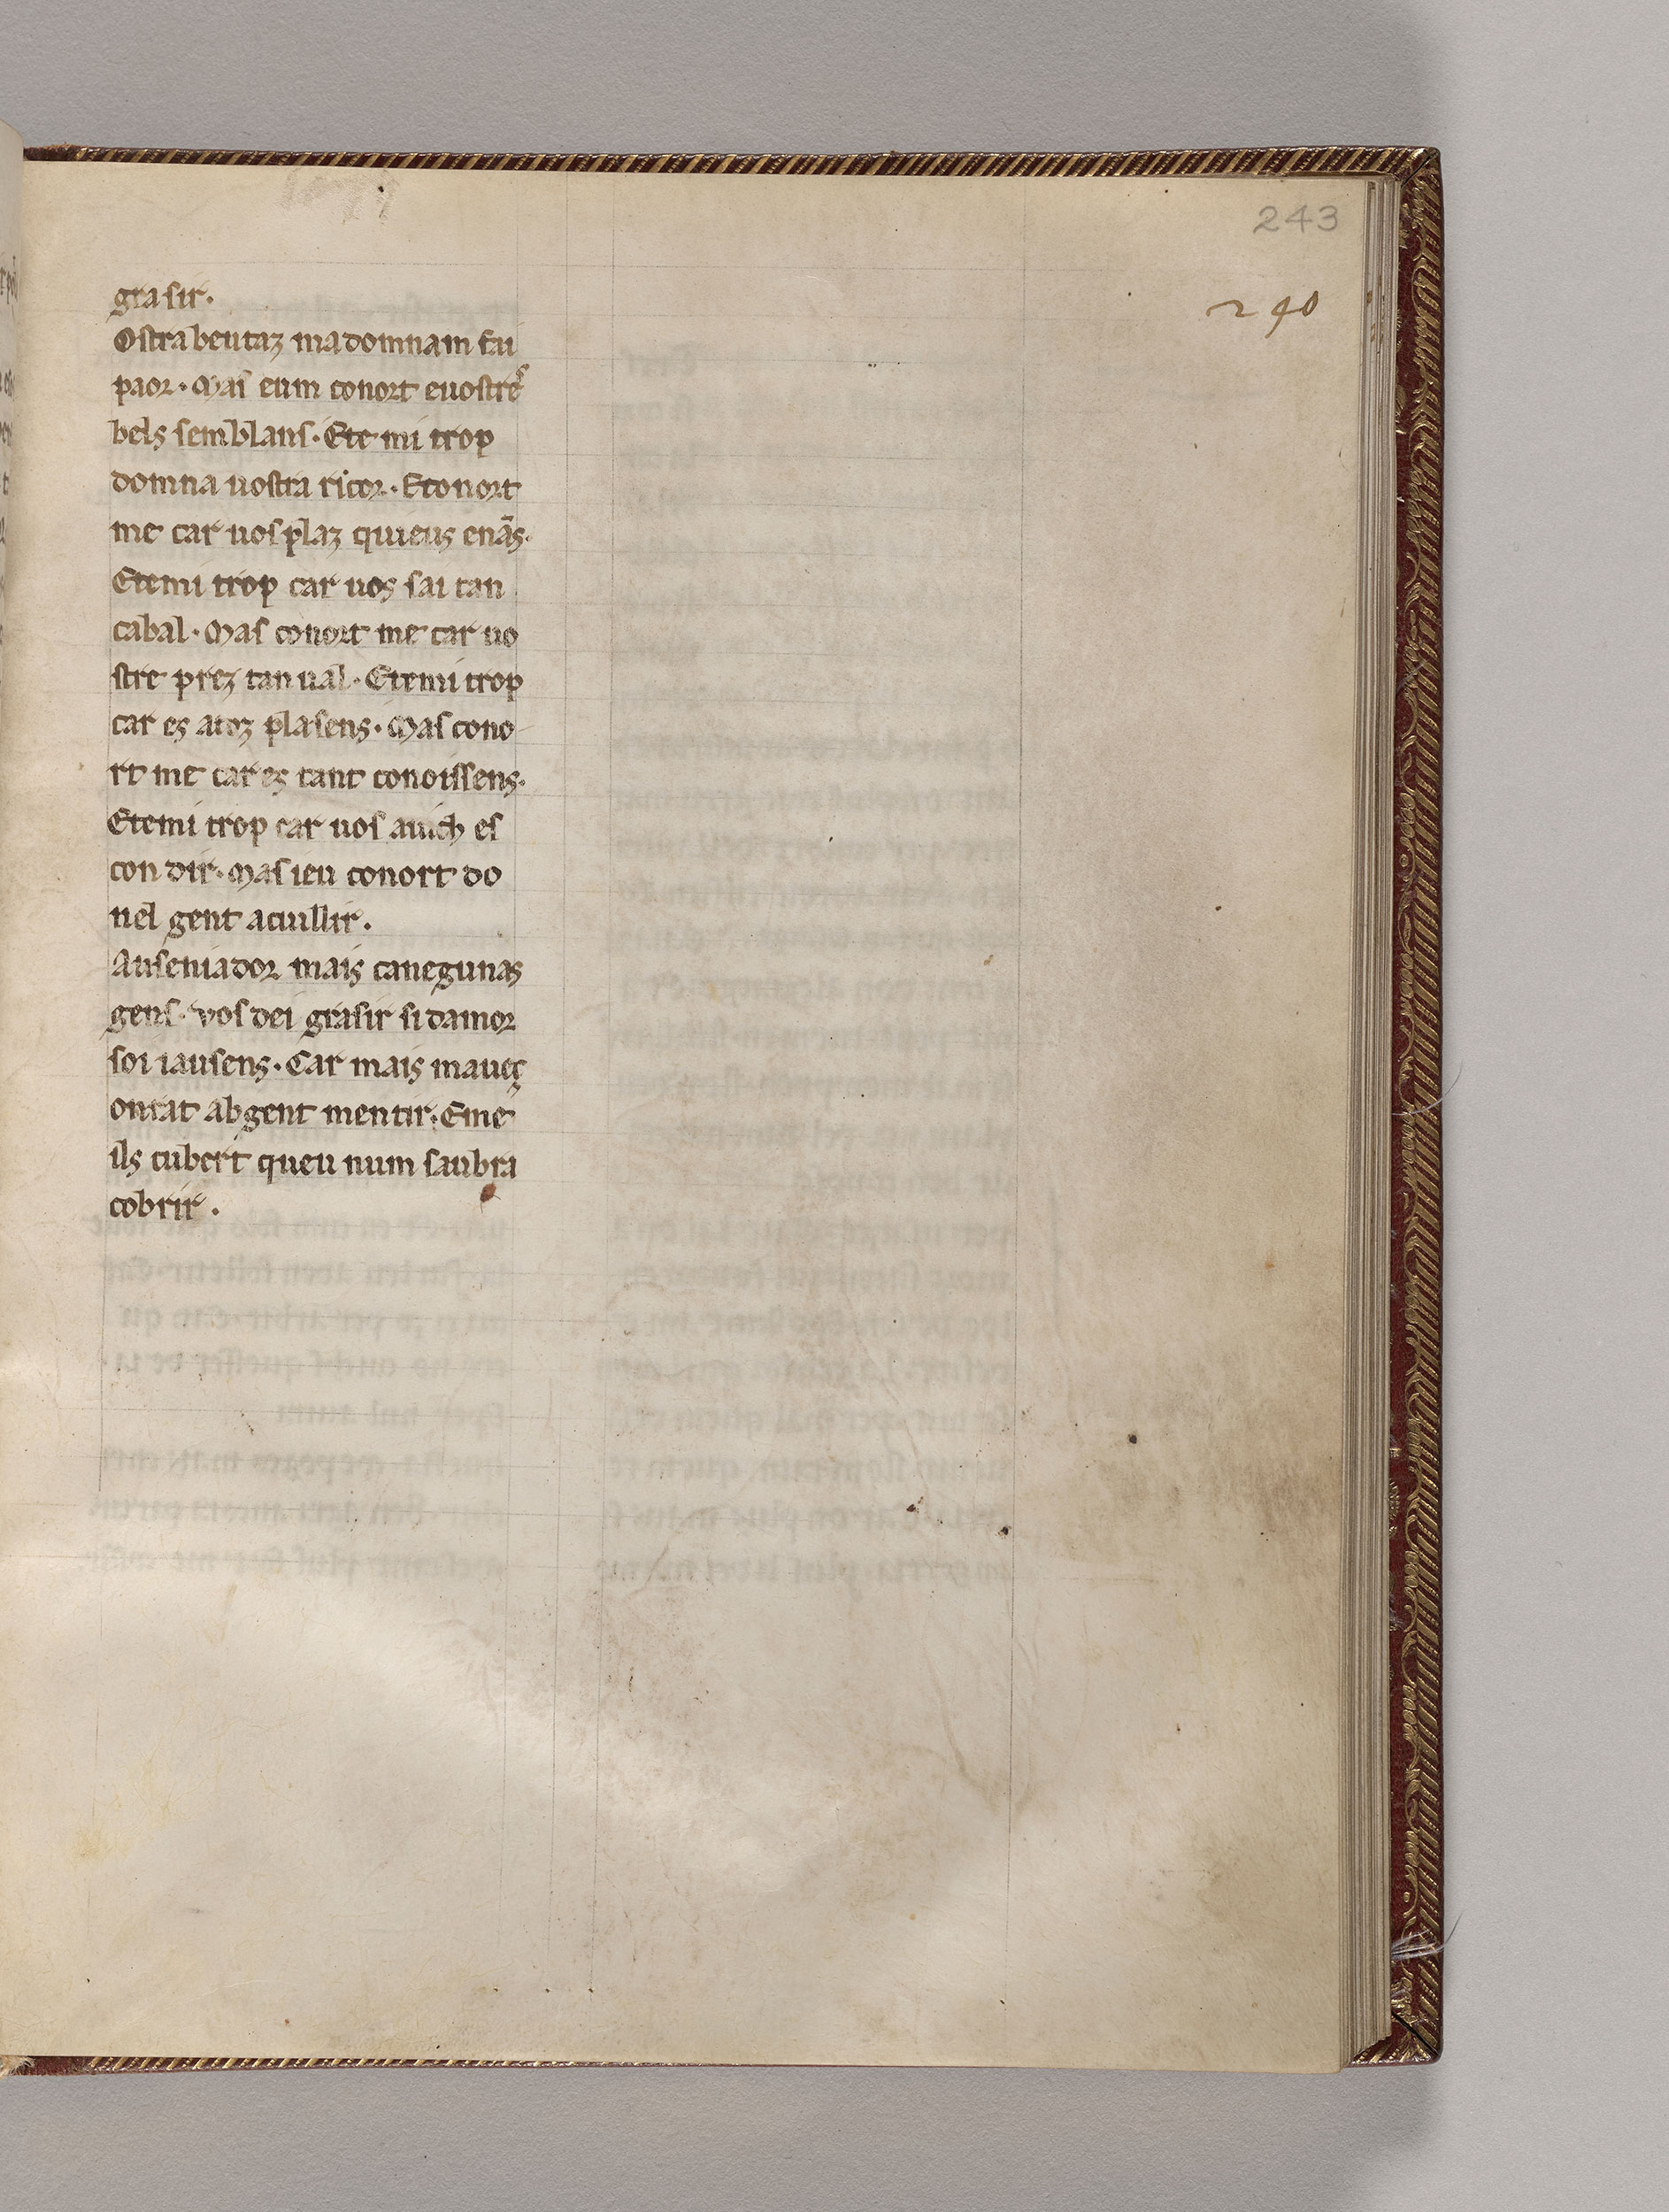 243
240
grasir.
Ostra beutaz ma domnam fai
paor. Mas eum conort euostres
bels semblans. Ete mi trop
domna uostra ricor. Econort
me car uos plaz quieus enãs.
Etemi trop car uos sai tan
cabal. Mas conort me car uo
stre prez tan ual. Etemi trop
car es atoz plasens. Mas cono
rt me car es tant conoissens.
Etemi trop car uos auich es
con dir. Mas ieu conort do
nel gent acuillir.
Auseniador mais canegunas
gens. vos dei grasir si damor
soi iausens. Car mais mauez
onrat ab gent mentir. Eme
ils cubert queu num saubra
cobrir.